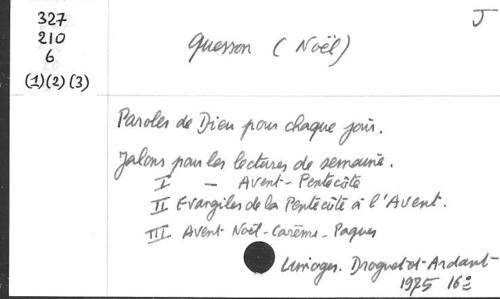 327
210
6
(1)(2)(3)
J
Quesson (Noël)
Paroles de Dieu pour chaque jour.
Jalons pour les lectures de semaine.
I - Avent-Pentecôte
II Evangiles de la Pentecôte à l'Avent.
III Avent Noël-Carême-Paques
Limoges. Droguet et Ardant
1975 16°